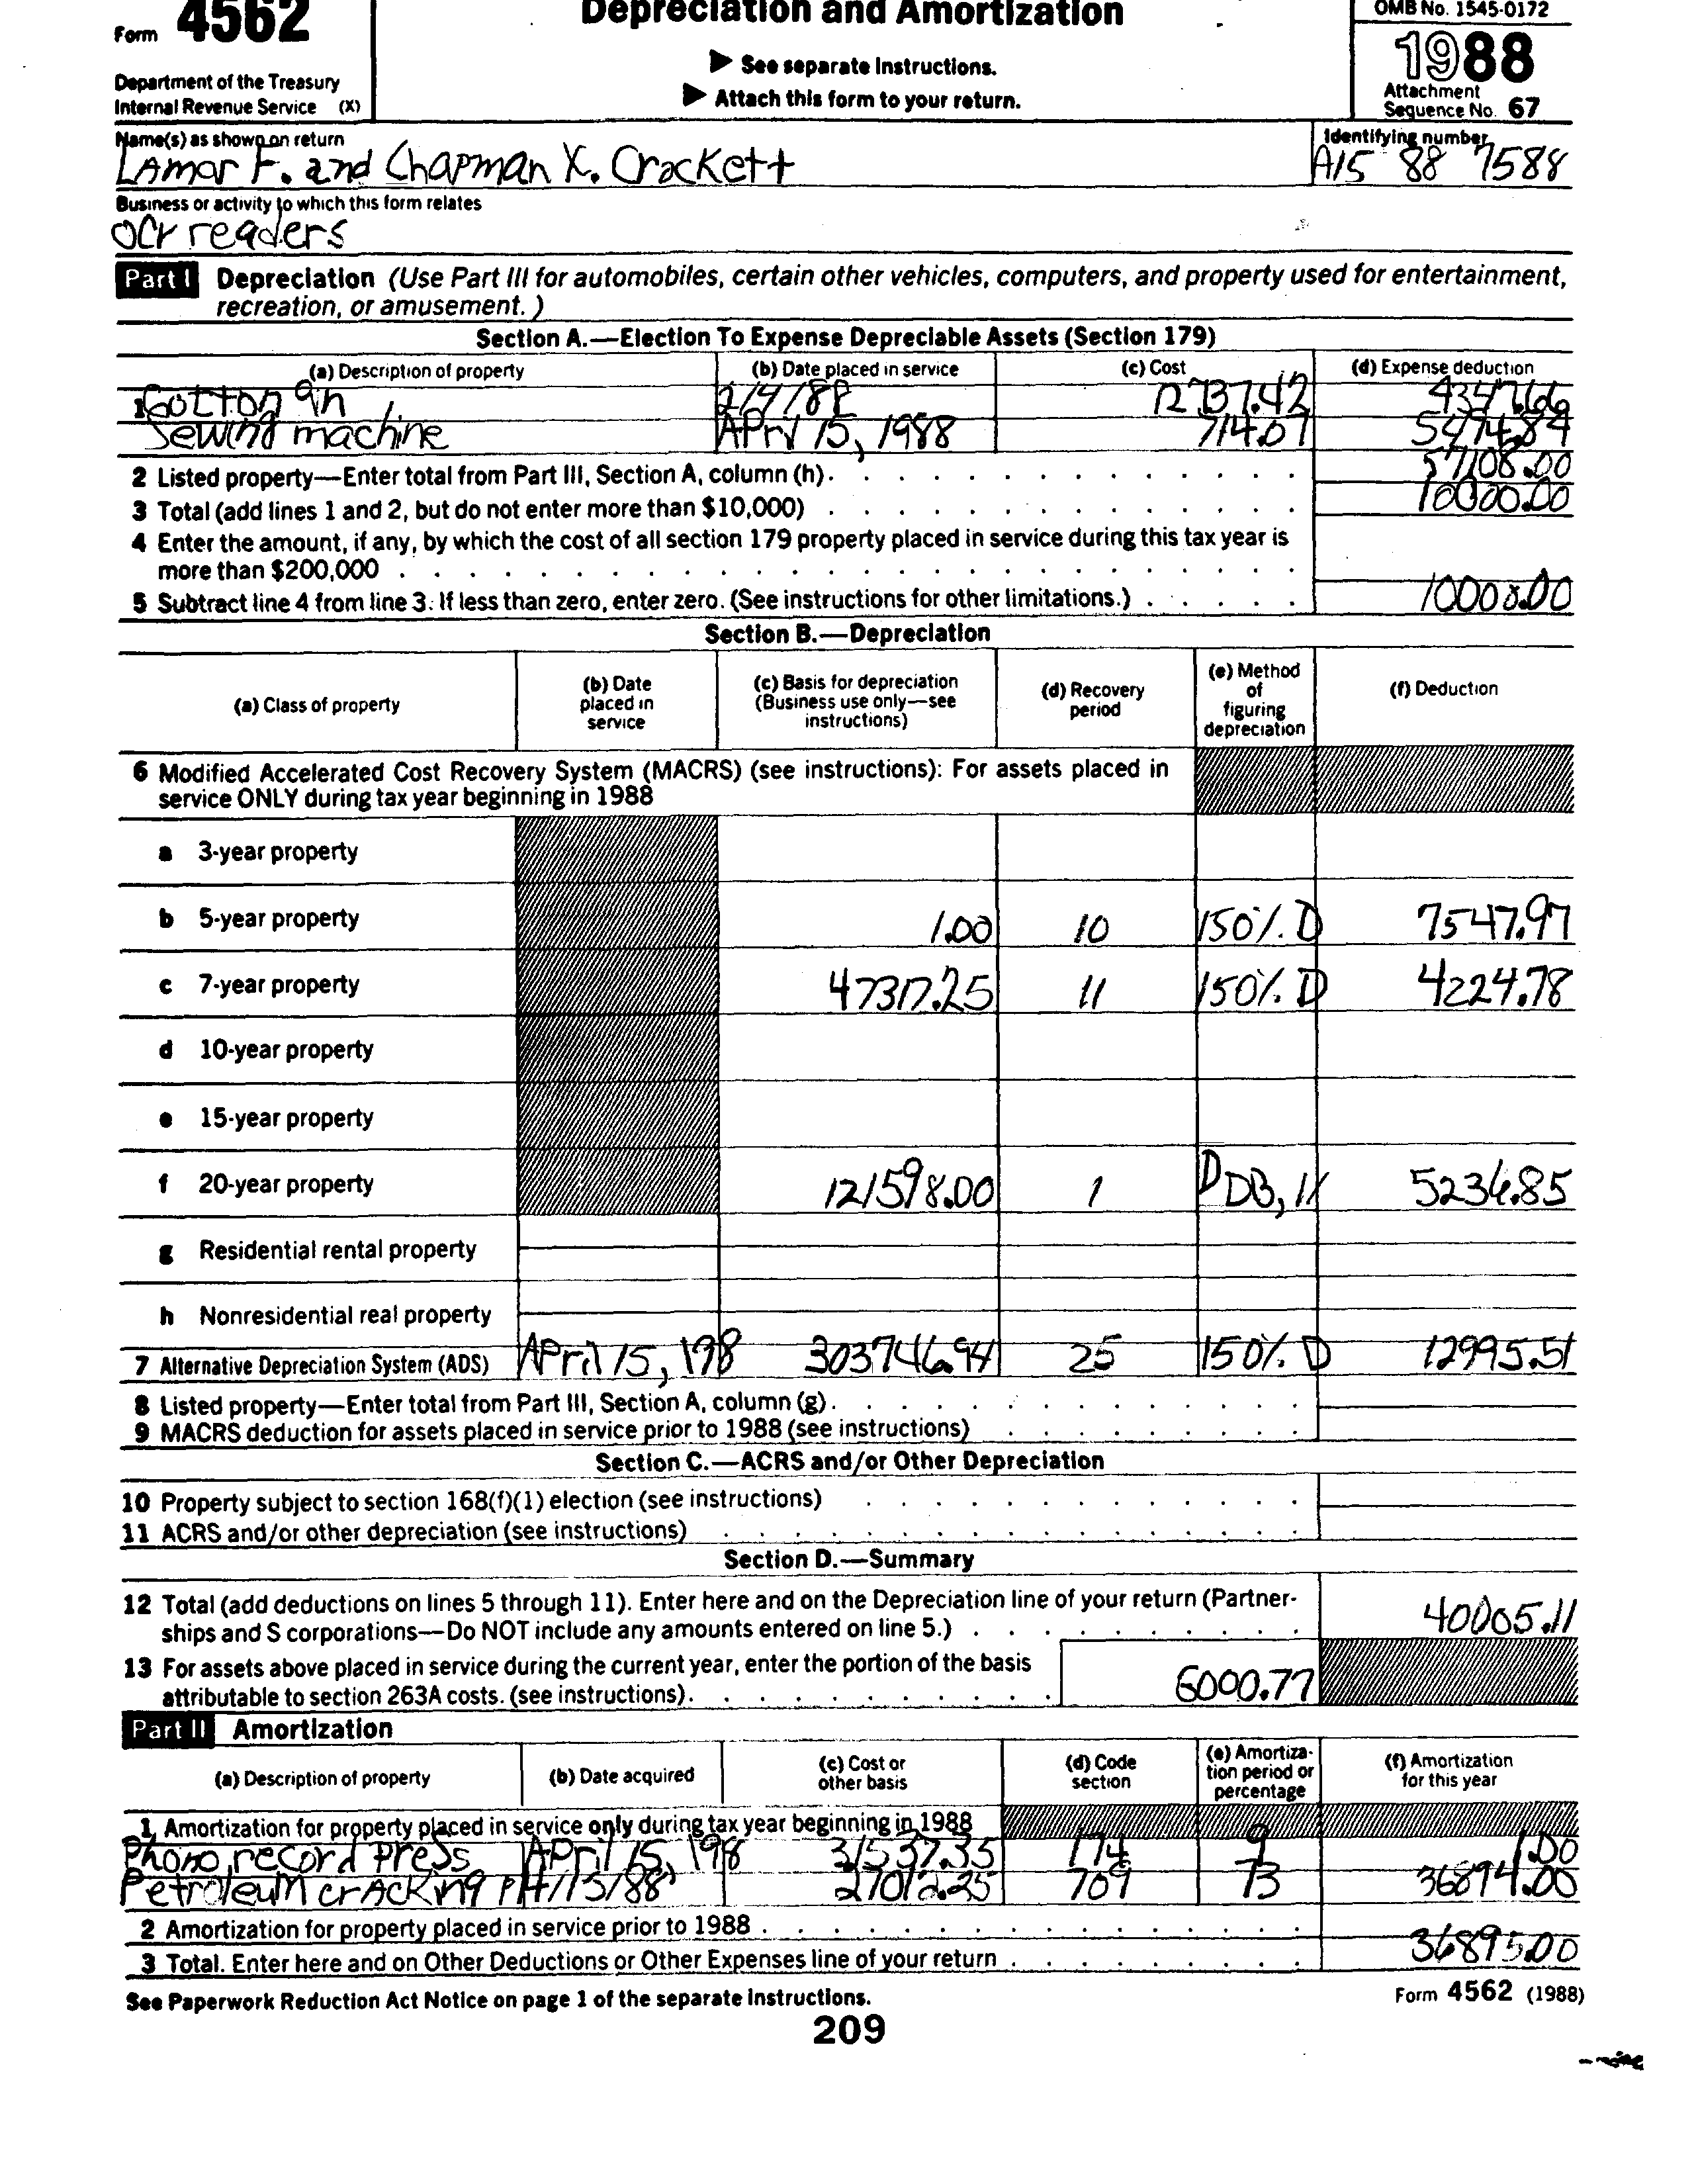 Form 4562
Depreciation and Amortization
OMB No. 1545-0172
► See separate Instructions.
► Attach this form to your return.
1988
Department of the Treasury
Internal Revenue Service (X)
Attachment
Sequence No. 67
Name(s) as shown on return
Identifying number
LAmar F. and Chapman X. Crackett
A15 88 7588
Business or activity to which this form relates
OCr readers
Part I Depreciation (Use Part III for automobiles, certain other vehicles, computers, and property used for entertainment,
recreation, or amusement.)
Section A.—Election To Expense Depreciable Assets (Section 179)
(a) Description of property (b) Date placed in service (c) Cost (d) Expense deduction
1 Cotton gin 2/4/88
Sewing machine April 15, 1988 714.07 5274.84
2 Listed property—Enter total from Part III, Section A, column (h). 57108.00
3 Total (add lines 1 and 2, but do not enter more than $10,000) 10000.00
4 Enter the amount, if any, by which the cost of all section 179 property placed in service during this tax year is
more than $200,000
5 Subtract line 4 from line 3. If less than zero, enter zero. (See instructions for other limitations.) 10000.00
Section B.—Depreciation
(a) Class of property
(b) Date
placed in
service
(c) Basis for depreciation
(Business use only—see
instructions)
(d) Recovery
period
(e) Method
of
figuring
depreciation
(f) Deduction
6 Modified Accelerated Cost Recovery System (MACRS) (see instructions): For assets placed in
service ONLY during tax year beginning in 1988
a 3-year property
b 5-year property 1.00 10 150% D 7547.97
c 7-year property 47317.25 11 150% D 4224.78
d 10-year property
e 15-year property
f 20-year property 121598.00 1 DDB, 5236.85
g Residential rental property
h Nonresidential real property
7 Alternative Depreciation System (ADS) April 15, 198 303746.94 25 150% D 12995.51
8 Listed property—Enter total from Part III, Section A, column (g).
9 MACRS deduction for assets placed in service prior to 1988 (see instructions)
Section C.—ACRS and/or Other Depreciation
10 Property subject to section 168(f)(1) election (see instructions)
11 ACRS and/or other depreciation (see instructions)
Section D.—Summary
12 Total (add deductions on lines 5 through 11). Enter here and on the Depreciation line of your return (Partner-
ships and S corporations—Do NOT include any amounts entered on line 5.) 40005.11
13 For assets above placed in service during the current year, enter the portion of the basis
attributable to section 263A costs. (see instructions). 6000.77
Part II Amortization
(a) Description of property (b) Date acquired
(c) Cost or
other basis
(d) Code
section
(e) Amortiza-
tion period or
percentage
(f) Amortization
for this year
1 Amortization for property placed in service only during tax year beginning in 1988
Phono record press April 15, 198 31537.35 174 9 1.00
Petroleum crAcking pl 4/15/88 27012.25 709 73 36894.00
2 Amortization for property placed in service prior to 1988
3 Total. Enter here and on Other Deductions or Other Expenses line of your return 36895.00
See Paperwork Reduction Act Notice on page 1 of the separate Instructions.
Form 4562 (1988)
209